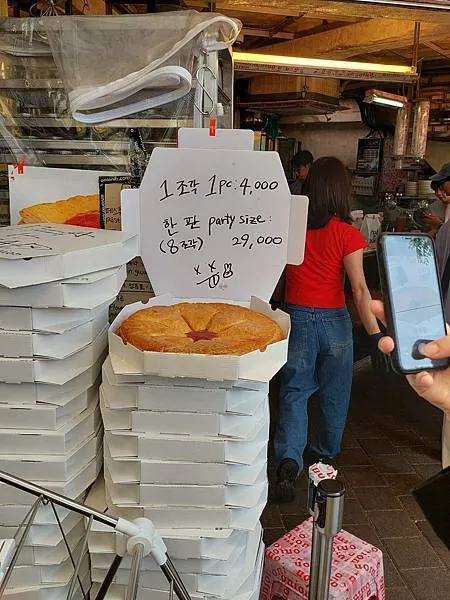 1 조각 1pc: 4,000
한 판 party size:
(8조각) 29,000
onion